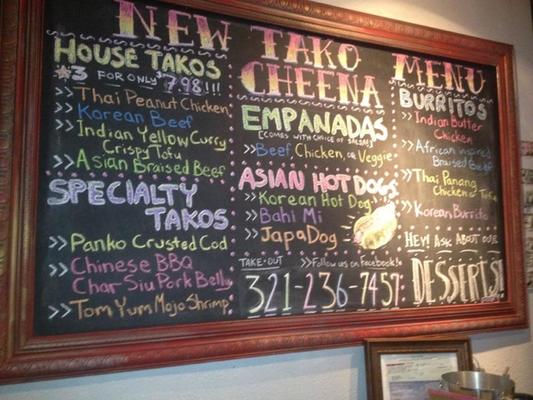 NEW TAKO MENU
CHEENA
HOUSE TAKOS
3 FOR ONLY $7.98!!!
>> Thai Peanut Chicken
>> Korean Beef
>> Indian Yellow Curry
Crispy Tofu
>> Asian Braised Beef
SPECIALTY
TAKOS
>> Panko Crusted Cod
>> Chinese BBQ
Char Siu Pork Belly
>> Tom Yum Mojo Shrimp
EMPANADAS
[COMES WITH CHOICE OF SALSA]
>> Beef, Chicken, or Veggie
ASIAN HOT DOGS
>> Korean Hot Dog
>> Bahl Mi
>> JapaDog
TAKE-OUT
>> Follow us on Facebook!
321-236-7457
BURRITOS
>> Indian Butter
Chicken
>> African inspired
Braised Beef
>> Thai Panang
Chicken or Tofu
>> Korean Burrito
HEY! ASK ABOUT OUR
DESSERTS!